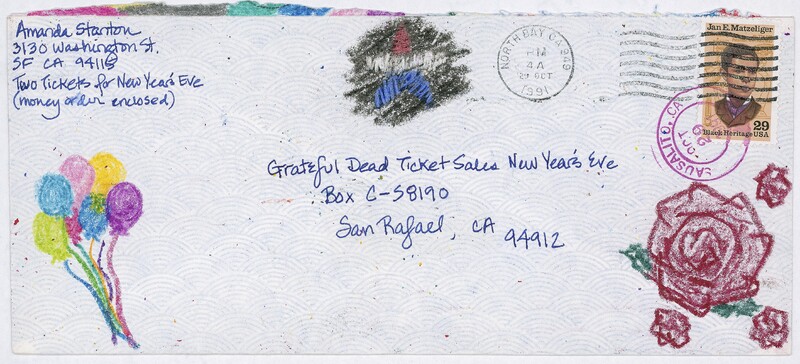 Amanda Stanton
3130 Washington St.
SF CA 94115
Two Tickets for New Year's Eve
(money order enclosed)
NORTH BAY CA 949
PM
4A
OCT
1991
Jan E. Matzeliger
29
Black Heritage USA
AUSALITO, CA
OCT
Grateful Dead Ticket Sales New Year's Eve
Box C-58190
San Rafael, CA 94912